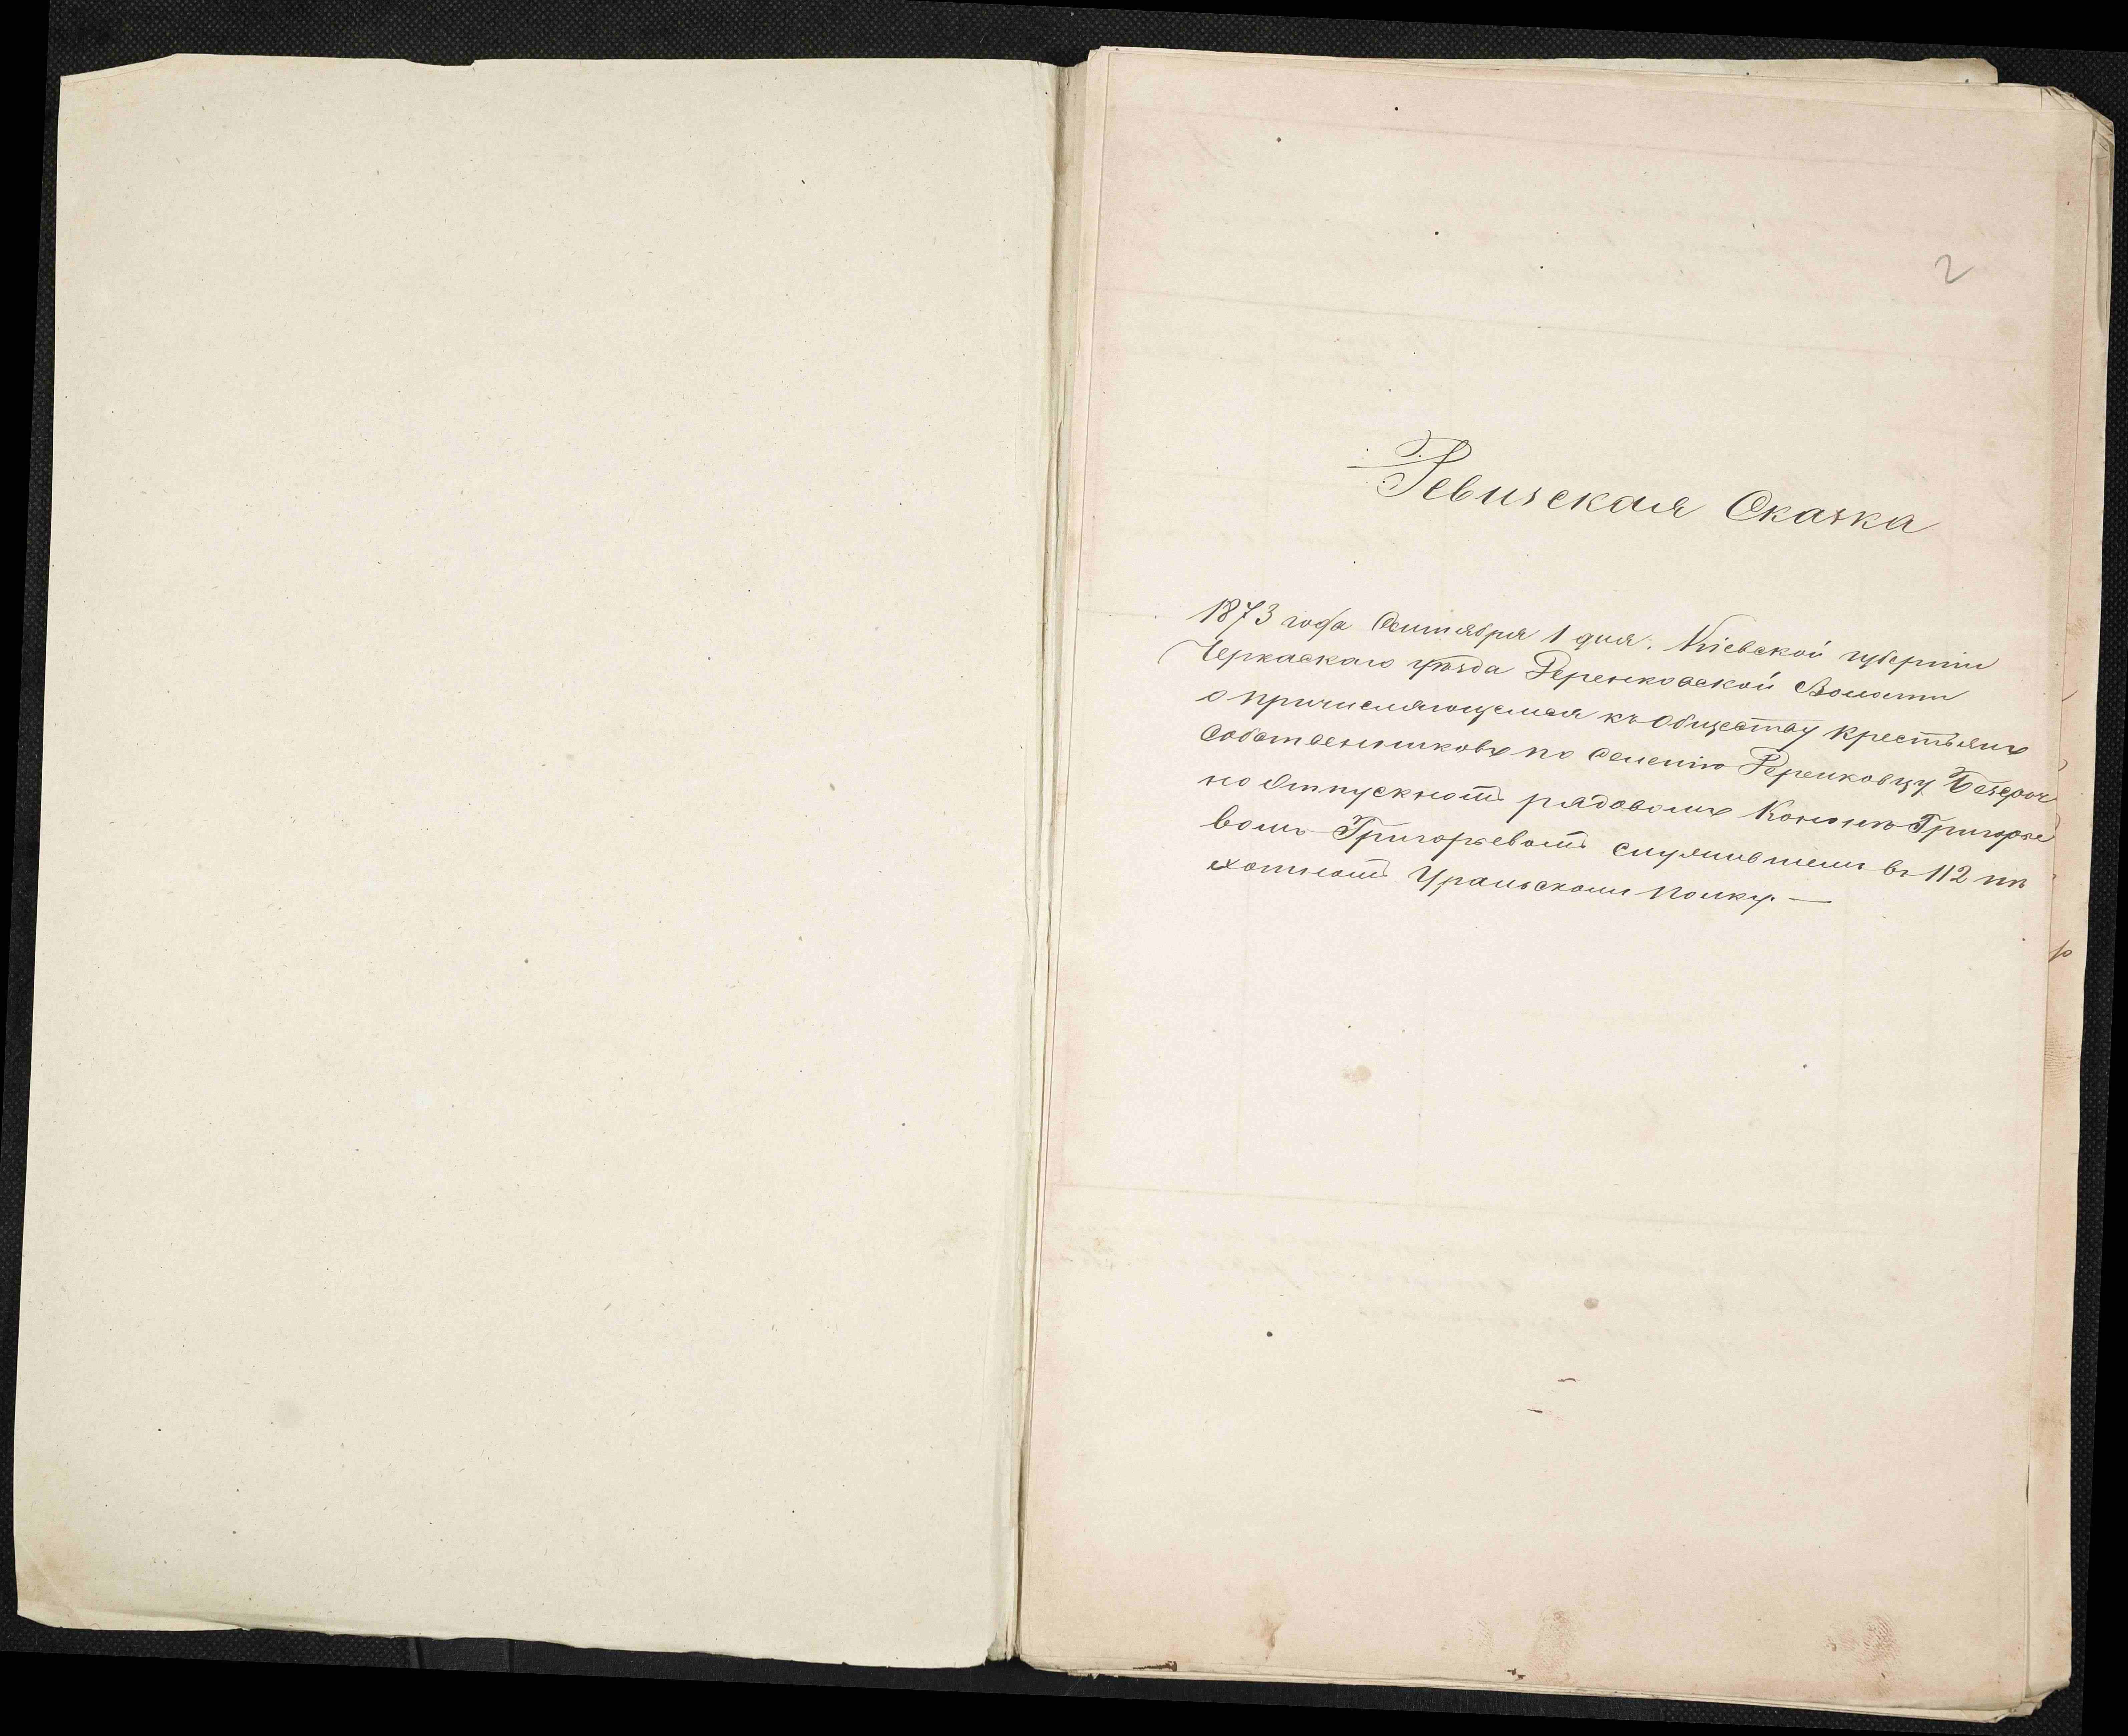 2
Ревизская Сказка
1873 года Сентября 1 дня. Кіевской губерніи
Черкаскаго уѣзда Деренковской Волости
о причисляющемся къ обществу крестьянъ
собственниковъ по селенію Деренковцу Безсроч
но отпускномъ рядовомъ Кононѣ Григорье
вомъ Григорьевомъ служившемъ въ 112 пѣ
хотномъ Уральскомъ полку. —